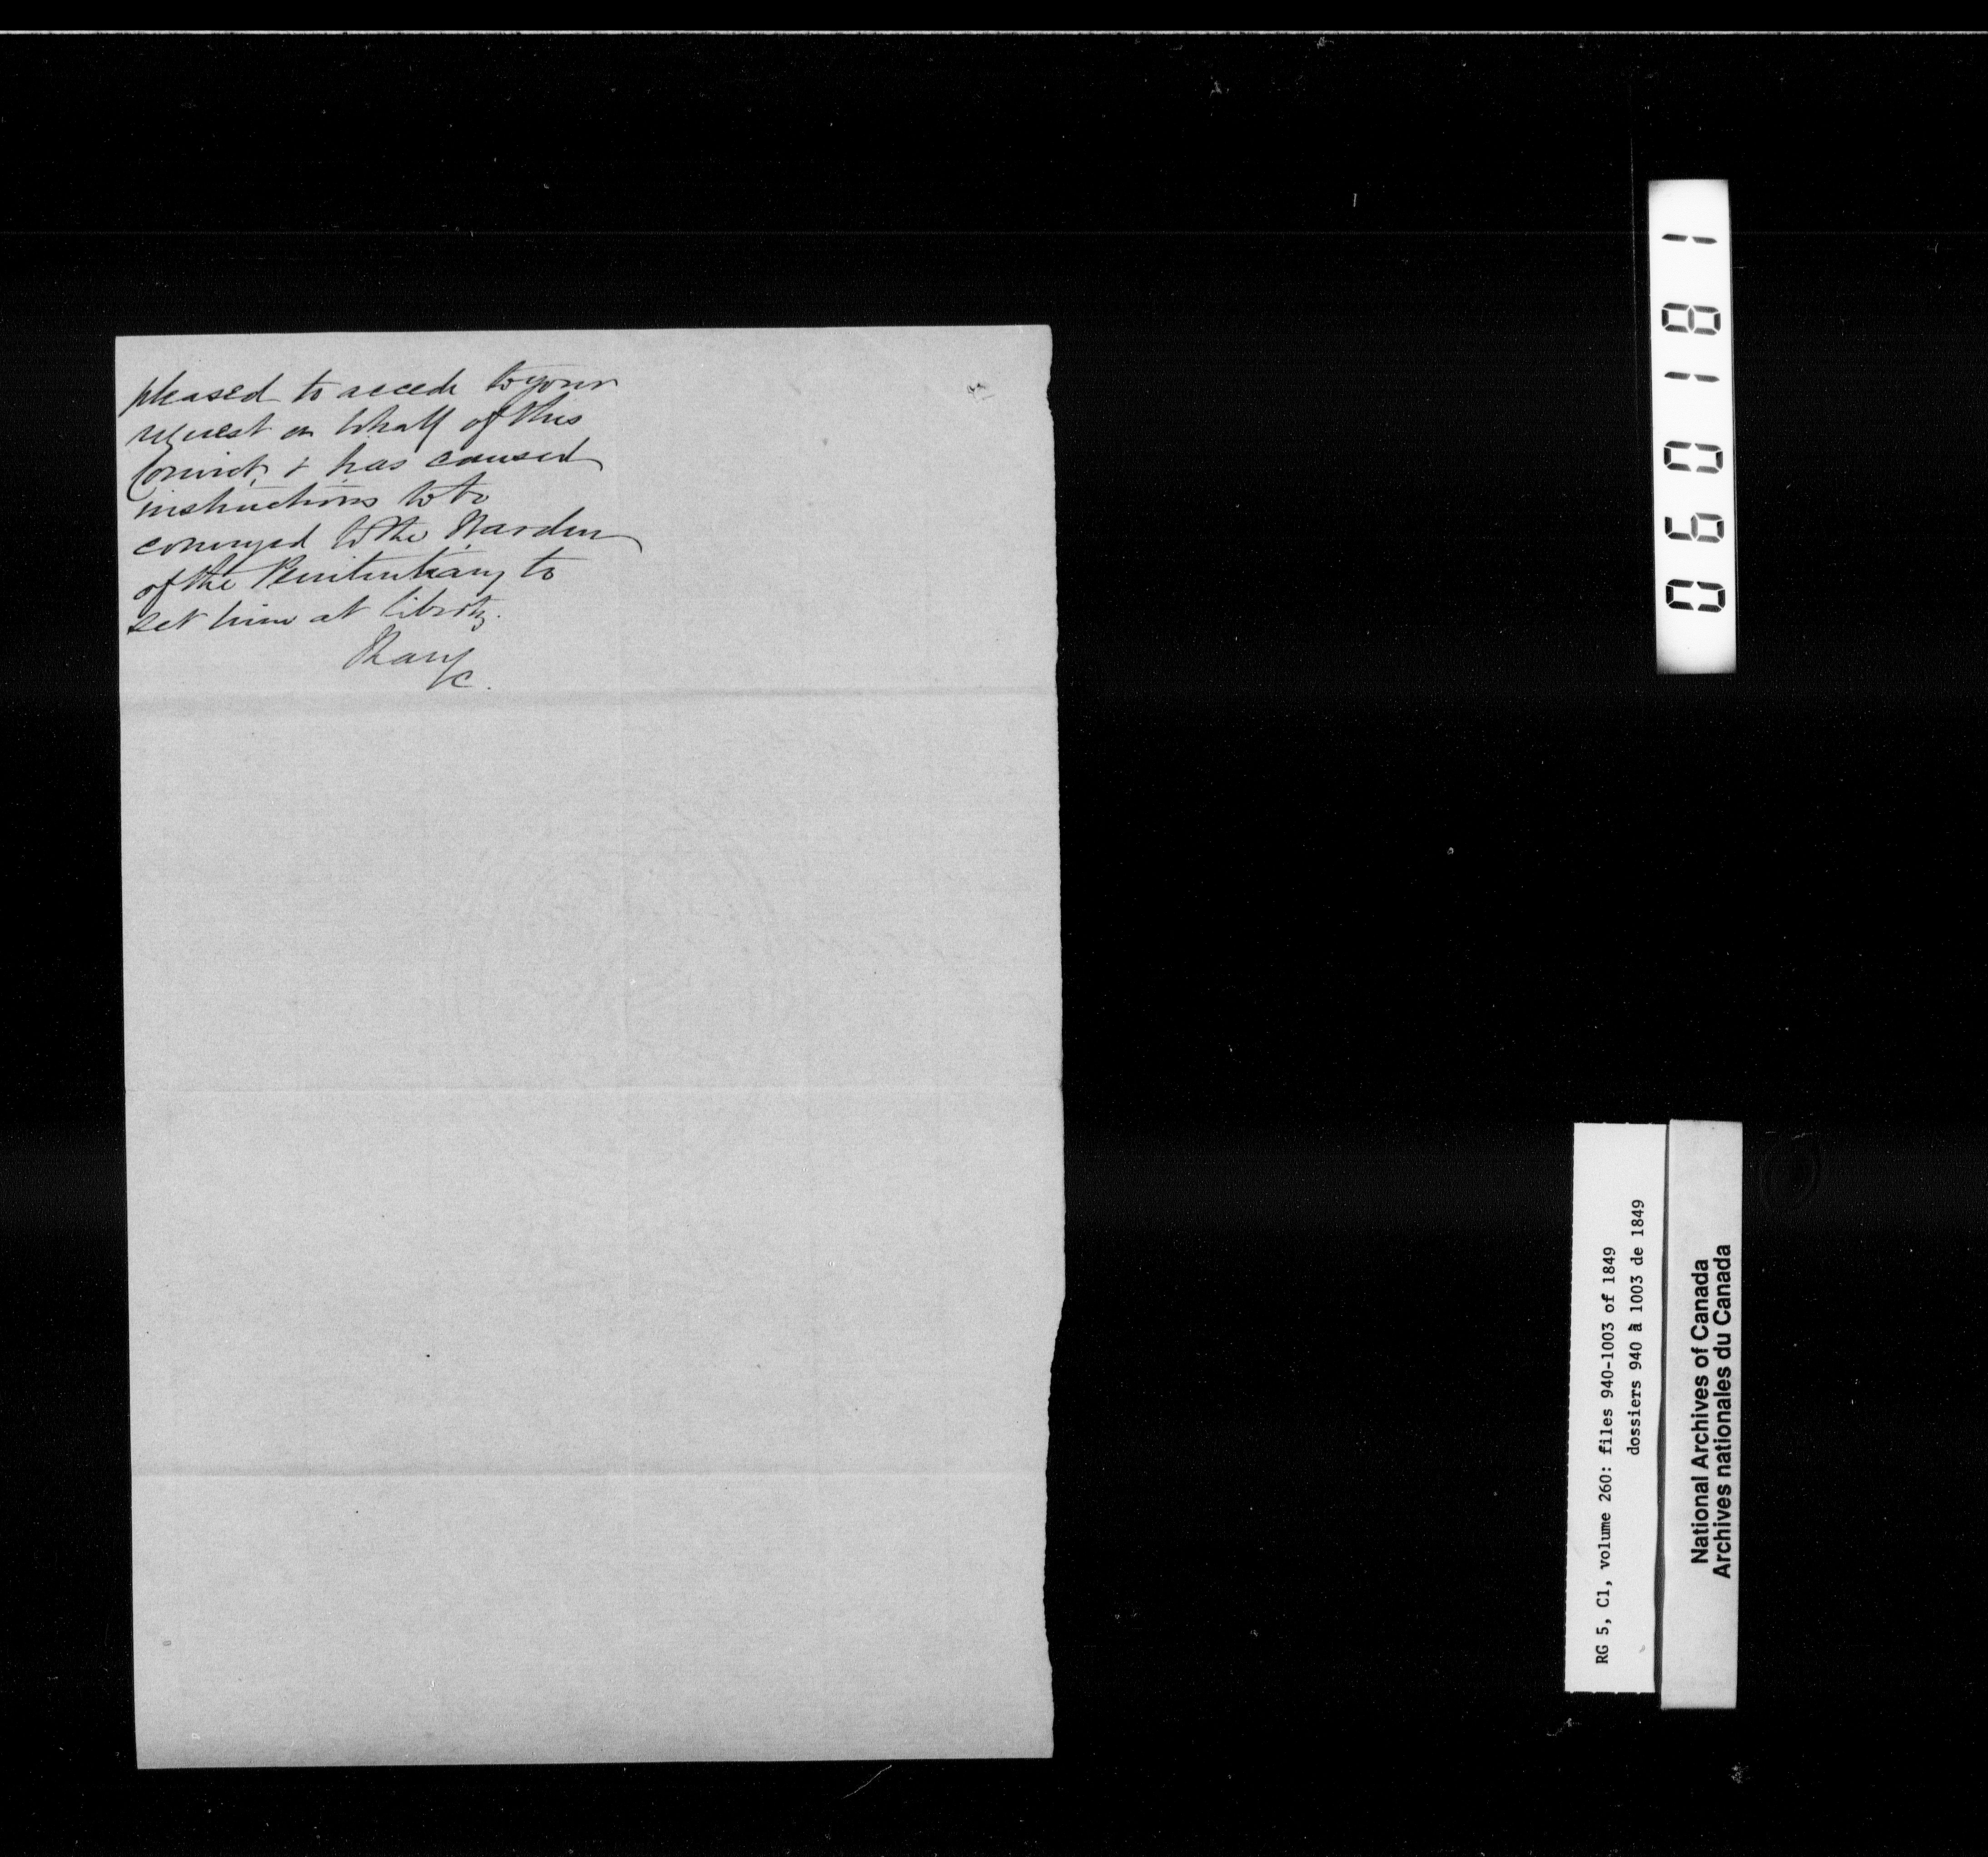 pleased to accede to your
request on behalf of this
Convict, & has caused
instructions to be
conveyed to the Warden
of the Penitentiary to
set him at liberty.
060181
RG 5, C1, volume 260: files 940-1003 of 1849
dossiers 940 à 1003 de 1849
National Archives of Canada
Archives nationales du Canada